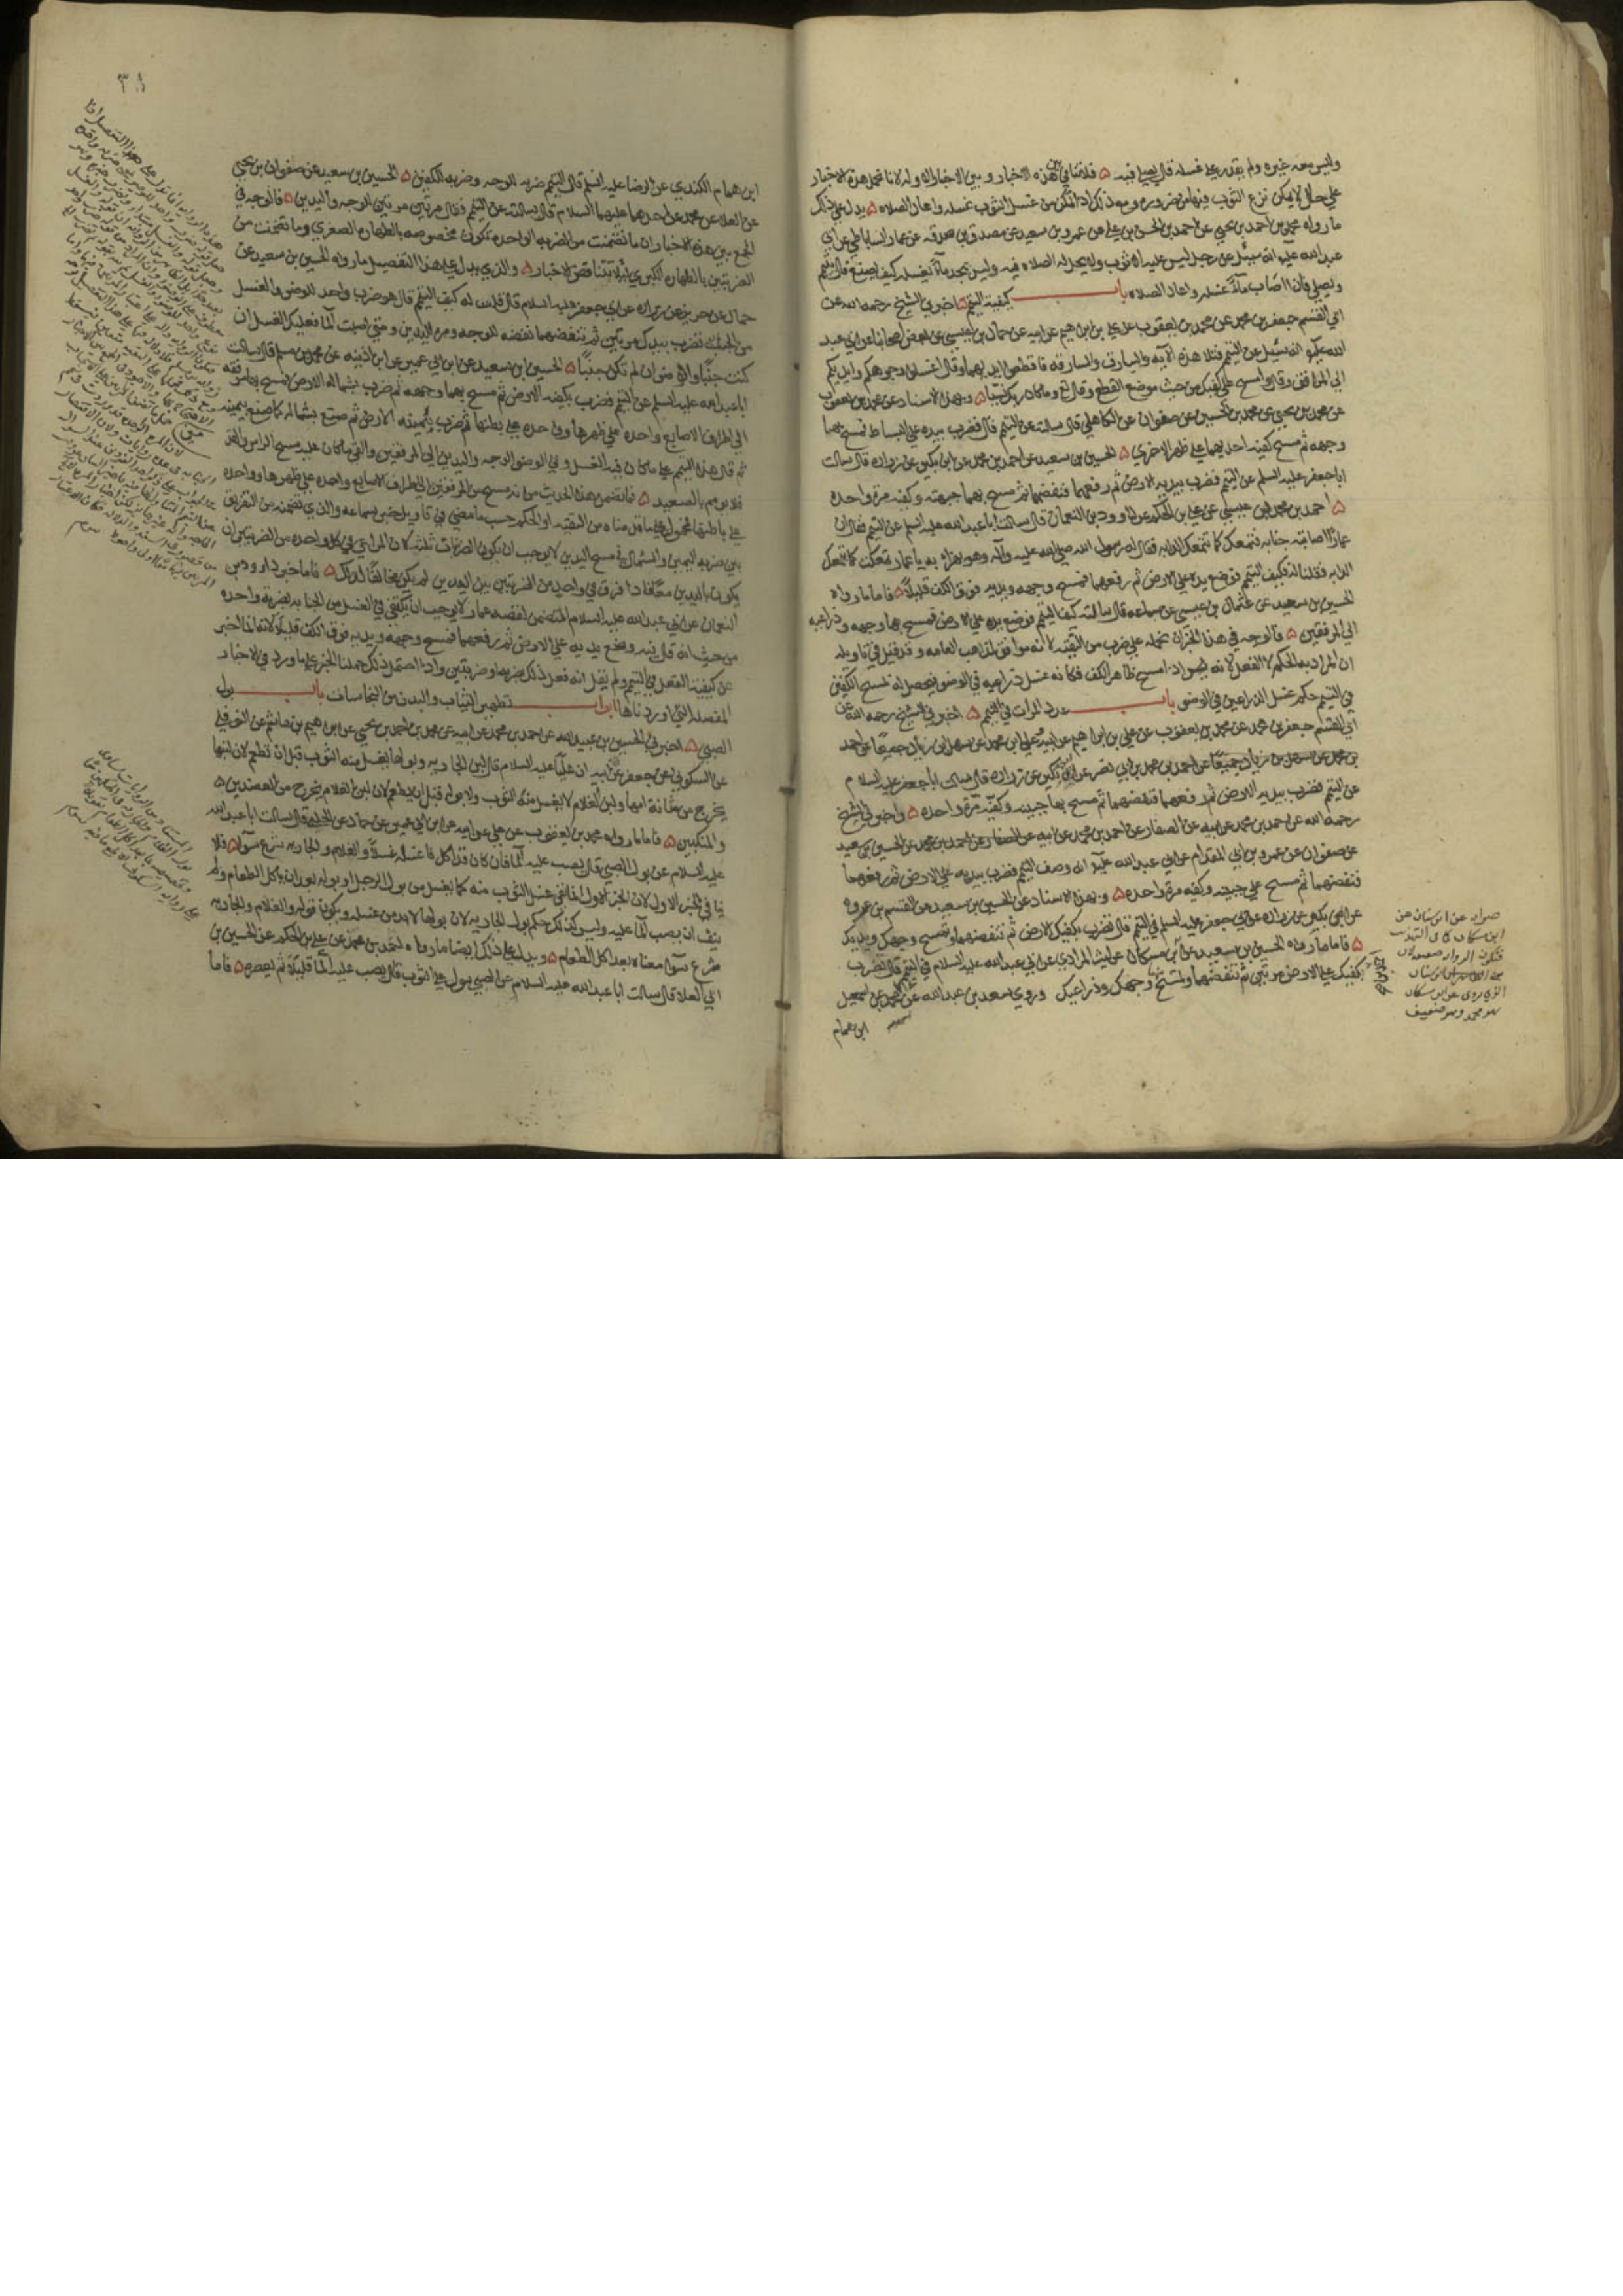 وليس معه غيره ولم يقدر على غسله قال يصلي فيه ۵ فلا تنافي بين هذه الاخبار وبين الاخبار الاوله لانا نحمل هذه الاخبار
على حال لا يمكن نزع الثوب فيها من ضرورة ومع ذلك اذا تمكن من غسل الثوب غسله واعاد الصلاه ۵ يدل على ذلك
ما رواه محمد بن احمد بن يحيى عن احمد بن الحسن بن علي عن عمرو بن سعيد عن مصدق بن صدقه عن عمار الساباطي عن ابي
عبد الله عليه انه سئل عن رجل ليس عليه الا ثوب ولا يحل له الصلاه فيه وليس يجد ماءً يغسله كيف يصنع قال يتيمم
ويصلي فان اصاب ماءً غسله واعاد الصلاه باب كيفية التيمم ۵ اخبرني الشيخ رحمه الله عن
ابي القسم جعفر بن محمد عن محمد بن يعقوب عن علي بن ابراهيم عن ابيه عن حماد بن عيسى عن بعض اصحابنا عن ابي عبد
الله عليه انه سئل عن التيمم فتلا هذه الآيه والسارق والسارقه فاقطعوا ايديهما وقال اغسلوا وجوهكم وايديكم
الى المرافق وقال وامسح على كفيك من حيث موضع القطع وقال تع وما كان ربك نسيا ۵ وبهذا الاسناد عن محمد بن يعقوب
عن محمد بن يحيى عن محمد بن الحسين عن صفوان عن الكاهلي قال سالته عن التيمم قال فضرب بيده على البساط فمسح بهما
وجهه ثم مسح كفيه احديهما على ظهر الاخرى ۵ الحسين بن سعيد عن احمد بن محمد عن ابن بكير عن زراره قال سالت
ابا جعفر عليه السلم عن التيمم فضرب بيديه الارض ثم رفعهما فنفضهما ثم مسح بهما جبهته وكفيه مرة واحده
۵ احمد بن محمد بن عيسى عن علي بن الحكم عن داوود بن النعمان قال سالت ابا عبد الله عليه السلم عن التيمم فقال ان
عمارًا اصابته جنابه فتمعك كما تتمعك الدابه فقال له رسول الله صلى الله عليه وآله وهو يهزأ به يا عمار تمعكت كما تتمعك
الدابه فقلنا له فكيف التيمم فوضع يده على الارض ثم رفعهما فمسح وجهه ويديه فوق الكف قليلًا ۵ فاما ما رواه
الحسين بن سعيد عن عثمان بن عيسى عن سماعه قال سالته كيف التيمم فوضع يده على الارض فمسح بها وجهه وذراعيه
الى المرفقين ۵ فالوجه في هذا الخبر ان نحمله على ضرب من التقيه لانه موافق لمذاهب العامه وقد قيل في تاويله
ان المراد به الحكم لا الفعل لانه اذا مسح ظاهر الكف فكانه غسل ذراعيه في الوضو فيحصل له بمسح الكفين
في التيمم حكم غسل الذراعين في الوضو باب عدد المرات في التيمم ۵ اخبرني الشيخ رحمه الله عن
ابي القسم جعفر بن محمد عن محمد بن يعقوب عن علي بن ابراهيم عن ابيه وعلي بن محمد عن سهل بن زياد جميعًا عن احمد
بن محمد بن ابي نصر عن ابن بكير عن زراره قال سالت ابا جعفر عليه السلام
عن التيمم فضرب بيديه الارض ثم رفعهما فنفضهما ثم مسح بهما جبينه وكفيه مرة واحده ۵ واخبرني الشيخ
رحمه الله عن احمد بن محمد عن ابيه عن الصفار عن احمد بن محمد عن الحسين بن سعيد
عن صفوان عن عمرو بن ابي المقدام عن ابي عبد الله عليه انه وصف التيمم فضرب بيديه على الارض ثم رفعهما
فنفضهما ثم مسح على جبينه وكفيه مرة واحده ۵ وبهذا الاسناد عن الحسين بن سعيد عن القسم بن عروه
عن ابن بكير عن زراره عن ابي جعفر عليه السلم في التيمم قال تضرب بكفيك الارض ثم تنفضهما وتمسح وجهك ويديك
۵ فاما ما رواه الحسين بن سعيد عن ابن مسكان عن ليث المرادي عن ابي عبد الله عليه السلام في التيمم قال تضرب
بكفيك على الارض مرتين ثم تنفضهما وتمسح بهما وجهك وذراعيك وروى سعد بن عبد الله عن احمد بن محمد عن اسمعيل
ابن همام
صوابه عن ابن سنان عن
ابن مسكان كما في التهذيب
فتكون الروايه ضعيفه لان
ابن سنان
الذي يروي عن ابن مسكان
هو محمد وهو ضعيف
٣٨
ابن همام الكندي عن الرضا عليه السلم قال التيمم ضربه للوجه وضربه للكفين ۵ الحسين بن سعيد عن صفوان بن يحيى
عن العلا عن محمد عن احدهما عليهما السلام قال سالته عن التيمم فقال مرتين مرتين للوجه واليدين ۵ فالوجه في
الجمع بين هذه الاخبار ان ما تضمنت من الضربه الواحده تكون مخصوصه بالطهاره الصغرى وما تضمنت من
الضربتين بالطهاره الكبرى لئلا تتناقض الاخبار ۵ والذي يدل على هذا التفصيل ما رواه الحسين بن سعيد عن
حماد عن حريز عن زراره عن ابي جعفر عليه السلام قال قلت له كيف التيمم قال هو ضرب واحد للوضو والغسل
من الجنابه تضرب بيديك مرتين ثم تنفضهما نفضه للوجه ومره لليدين ومتى اصبت الما فعليك الغسل ان
كنت جنبًا والوضو ان لم تكن جنبًا ۵ الحسين بن سعيد عن ابن ابي عمير عن ابن اذينه عن محمد بن مسلم قال سالت
ابا عبد الله عليه السلم عن التيمم فضرب بكفيه الارض ثم مسح بهما وجهه ثم ضرب بشماله الارض فمسح بها مرفقه
الى اطراف الاصابع واحده على ظهرها وواحده على بطنها ثم ضرب بيمينه الارض ثم صنع بشماله كما صنع بيمينه
ثم قال هذا التيمم على ما كان فيه الغسل وفي الوضو الوجه واليدين الى المرفقين والقى ما كان عليه مسح الراس والقد
مين فلا يومم بالصعيد ۵ فما تضمن هذا الحديث من انه مسح من المرفقين الى اطراف الاصابع واحده على ظهرها وواحده
على باطنها فمحمول على ما قدمناه من التقيه او الحكم حسب ما مضى في تاويل خبر سماعه والذي تضمنه من التفريق
بين ضربه اليمين والشمال في مسح اليدين لا يوجب ان يكون الضربات ثلثه لان المراعى في كل واحده من الضربتين ان
يكون باليدين معًا فاذا فرق في واحده من الضربتين بين اليدين لم يكن مخالفًا لذلك ۵ فاما خبر داود بن
النعمان عن ابي عبد الله عليه السلام المتضمن لقصه عمار لا يوجب ان يكتفي في الغسل من الجنابه بضربه واحده
من حيث انه قال فيه وضع يديه على الارض ثم رفعهما فمسح وجهه ويديه فوق الكف قليلًا لانه انما اخبر
عن كيفيه الفعل في التيمم ولم يقل انه فعل ذلك بضربه او ضربتين واذا احتمل ذلك حملنا الخبر على ما ورد في الاخبار
المفصله التي اوردناها ابواب تطهير الثياب والبدن من النجاسات باب بول
الصبي ۵ اخبرني الحسين بن عبيد الله عن احمد بن محمد عن ابيه عن محمد بن احمد بن يحيى عن ابراهيم بن هاشم عن النوفلي
عن السكوني عن جعفر عن ابيه ان عليًا عليه السلام قال لبن الجاريه وبولها يغسل منه الثوب قبل ان تطعم لان لبنها
يخرج من مثانة امها ولبن الغلام لا يغسل منه الثوب ولا بوله قبل ان يطعم لان لبن الغلام يخرج من العضدين
والمنكبين ۵ فاما ما رواه محمد بن يعقوب عن علي عن ابيه عن ابن ابي عمير عن حماد عن الحلبي قال سالت ابا عبد الله
عليه السلام عن بول الصبي قال يصب عليه الما فان كان قد اكل فاغسله غسلًا والغلام والجاريه شرع سوآ ۵ فلا
ينافي الخبر الاول لان الخبر الاول انما نفي غسل الثوب منه كما يغسل من بول الرجل او بوله بعد ان ياكل الطعام ولم
ينف ان يصب الما عليه وليس كذلك حكم بول الجاريه لان بولها لا بد من غسله ويكون قوله والغلام والجاريه
شرع سوآ معناه بعد اكل الطعام ۵ ويدل على ذلك ايضا ما رواه احمد بن محمد عن علي بن الحكم عن الحسين بن
ابي العلا قال سالت ابا عبد الله عليه السلام عن الصبي يبول على الثوب قال يصب عليه الما قليلًا ثم يعصره ۵ فاما